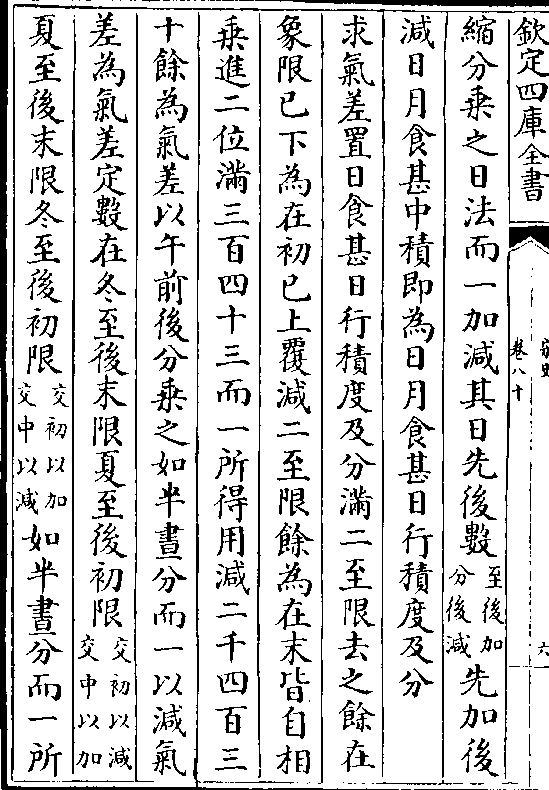 欽定四庫全書
卷八十
六
縮分乗之日法而一加減其日先後數至後加分後減先加後
減日月食甚中積即為日月食甚日行積度及分
求氣差置日食甚日行積度及分滿二至限去之餘在
象限已下為在初已上覆減二至限餘為在末皆自相
乗進二位滿三百四十三而一所得用減二千四百三
十餘為氣差以午前後分乗之如半晝分而一以減氣
差為氣差定數在冬至後末限夏至後初限交初以減交中以加
夏至後末限冬至後初限交初以加交中以減如半晝分而一所